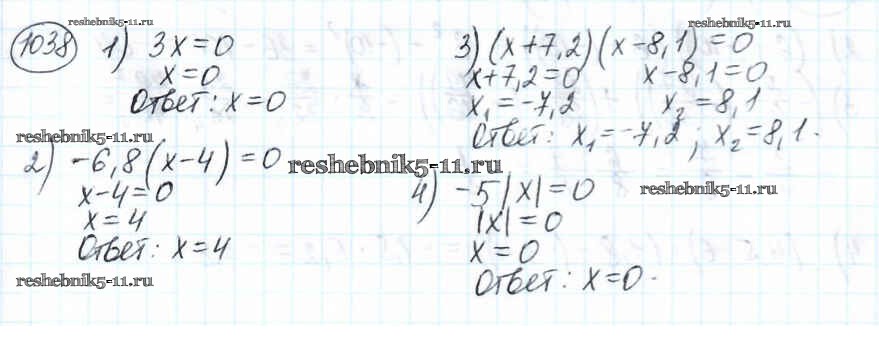 reshebnik5-11.ru
1038 1) 3x=0
x=0
Ответ: x=0
reshebnik5-11.ru
2) -6,8(x-4)=0
x-4=0
x=4
Ответ: x=4
reshebnik5-11.ru
reshebnik5-11.ru
reshebnik5-11.ru
3) (x+7,2)(x-8,1)=0
x+7,2=0 x-8,1=0
x₁=-7,2 x₂=8,1
Ответ: x₁=-7,2; x₂=8,1.
4) -5|x|=0
|x|=0
x=0
Ответ: x=0.
reshebnik5-11.ru